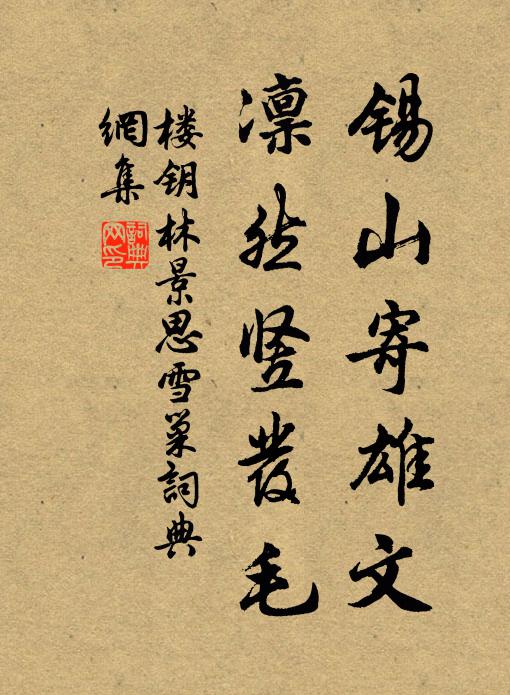 锡山寄雄文
凛然竖發毛
楼钥林景思雪巢詞典
網集
詞典
网印